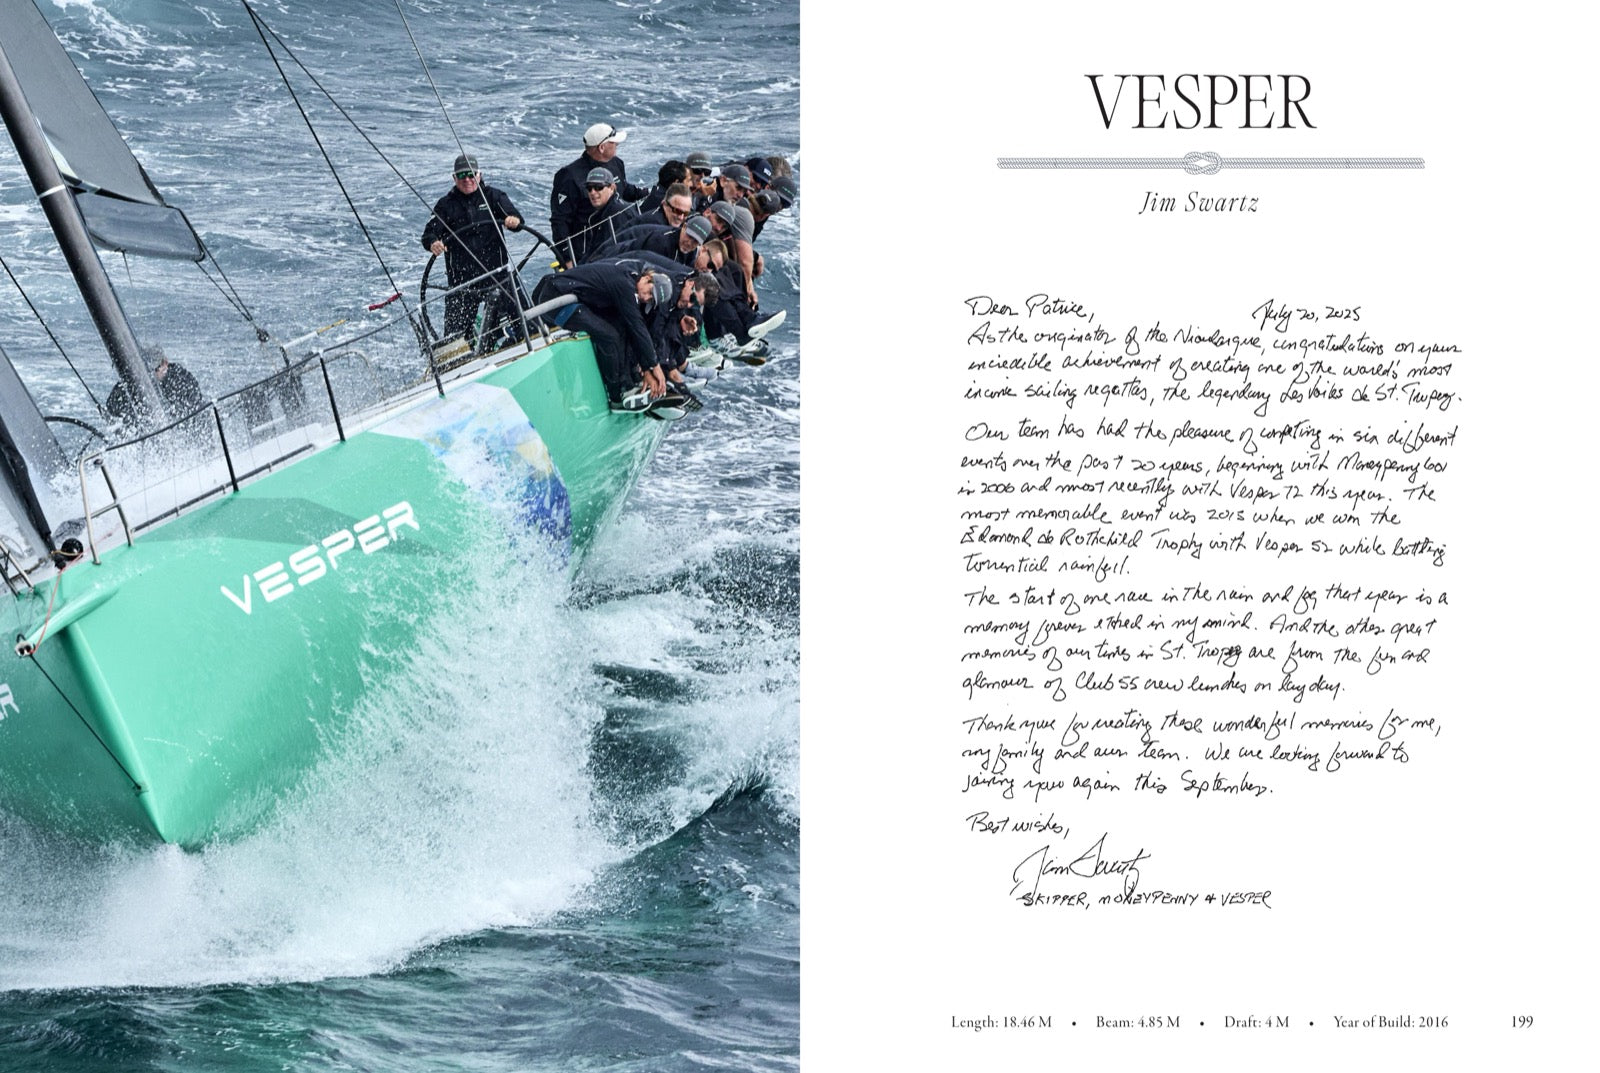 VESPER
R
VESPER
Jim Swartz
Dear Patrice, July 20, 2025
As the originator of the Nioulargue, congratulations on your
incredible achievement of creating one of the world's most
iconic sailing regattas, the legendary Les Voiles de St. Tropez.
Our team has had the pleasure of competing in six different
events over the past 20 years, beginning with Moneypenny 601
in 2006 and most recently with Vesper 72 this year. The
most memorable event was 2015 when we won the
Edmond de Rothchild Trophy with Vesper 52 while battling
torrential rainfall.
The start of one race in the rain and fog that year is a
memory forever etched in my mind. And the other great
memories of our times in St. Tropez are from the fun and
glamour of Club 55 crew lunches on lay day.
Thank you for creating these wonderful memories for me,
my family and our team. We are looking forward to
joining you again this September.
Best wishes,
Jim Swartz
SKIPPER, MONEYPENNY & VESPER
Length: 18.46 M • Beam: 4.85 M • Draft: 4 M • Year of Build: 2016 199